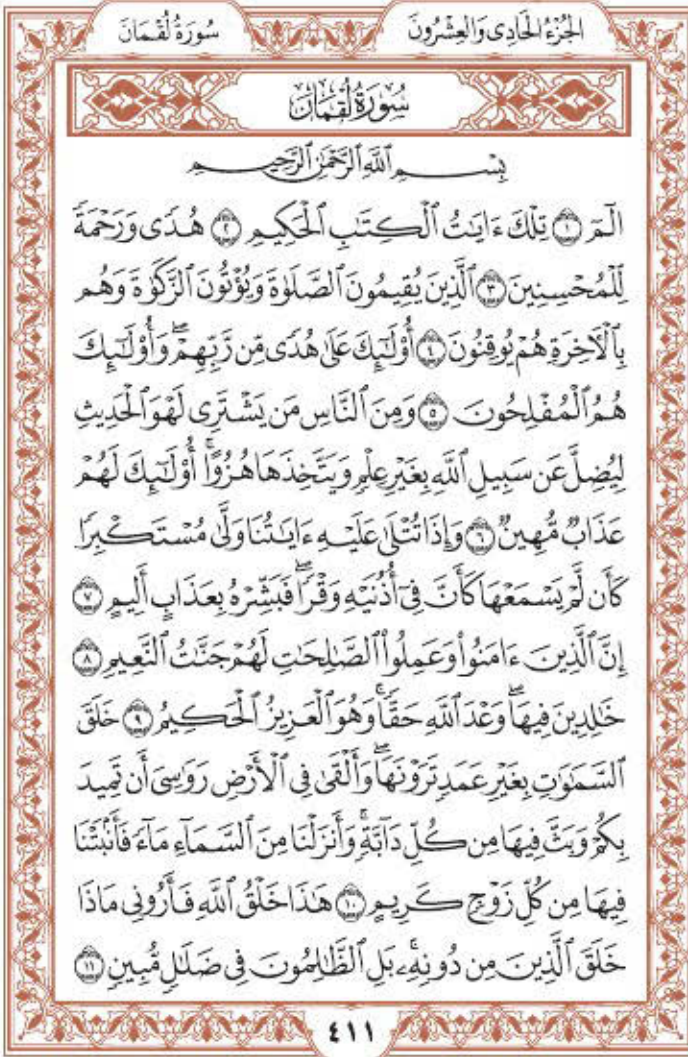 الجُزْءُ الحَادِى وَالعِشْرُونَ سُورَةُ لُقْمَانَ
سُورَةُ لُقْمَانَ
بِسْمِ ٱللَّهِ ٱلرَّحْمَٰنِ ٱلرَّحِيمِ
الٓمٓ ١ تِلْكَ ءَايَٰتُ ٱلْكِتَٰبِ ٱلْحَكِيمِ ٢ هُدًى وَرَحْمَةً
لِّلْمُحْسِنِينَ ٣ ٱلَّذِينَ يُقِيمُونَ ٱلصَّلَوٰةَ وَيُؤْتُونَ ٱلزَّكَوٰةَ وَهُم
بِٱلْأٓخِرَةِ هُمْ يُوقِنُونَ ٤ أُو۟لَٰٓئِكَ عَلَىٰ هُدًى مِّن رَّبِّهِمْۖ وَأُو۟لَٰٓئِكَ
هُمُ ٱلْمُفْلِحُونَ ٥ وَمِنَ ٱلنَّاسِ مَن يَشْتَرِى لَهْوَ ٱلْحَدِيثِ
لِيُضِلَّ عَن سَبِيلِ ٱللَّهِ بِغَيْرِ عِلْمٍ وَيَتَّخِذَهَا هُزُوًاۚ أُو۟لَٰٓئِكَ لَهُمْ
عَذَابٌ مُّهِينٌ ٦ وَإِذَا تُتْلَىٰ عَلَيْهِ ءَايَٰتُنَا وَلَّىٰ مُسْتَكْبِرًا
كَأَن لَّمْ يَسْمَعْهَا كَأَنَّ فِىٓ أُذُنَيْهِ وَقْرًاۖ فَبَشِّرْهُ بِعَذَابٍ أَلِيمٍ ٧
إِنَّ ٱلَّذِينَ ءَامَنُوا۟ وَعَمِلُوا۟ ٱلصَّٰلِحَٰتِ لَهُمْ جَنَّٰتُ ٱلنَّعِيمِ ٨
خَٰلِدِينَ فِيهَاۖ وَعْدَ ٱللَّهِ حَقًّاۚ وَهُوَ ٱلْعَزِيزُ ٱلْحَكِيمُ ٩ خَلَقَ
ٱلسَّمَٰوَٰتِ بِغَيْرِ عَمَدٍ تَرَوْنَهَاۖ وَأَلْقَىٰ فِى ٱلْأَرْضِ رَوَٰسِىَ أَن تَمِيدَ
بِكُمْ وَبَثَّ فِيهَا مِن كُلِّ دَآبَّةٍۚ وَأَنزَلْنَا مِنَ ٱلسَّمَآءِ مَآءً فَأَنۢبَتْنَا
فِيهَا مِن كُلِّ زَوْجٍ كَرِيمٍ ١٠ هَٰذَا خَلْقُ ٱللَّهِ فَأَرُونِى مَاذَا
خَلَقَ ٱلَّذِينَ مِن دُونِهِۦۚ بَلِ ٱلظَّٰلِمُونَ فِى ضَلَٰلٍ مُّبِينٍ ١١
٤١١